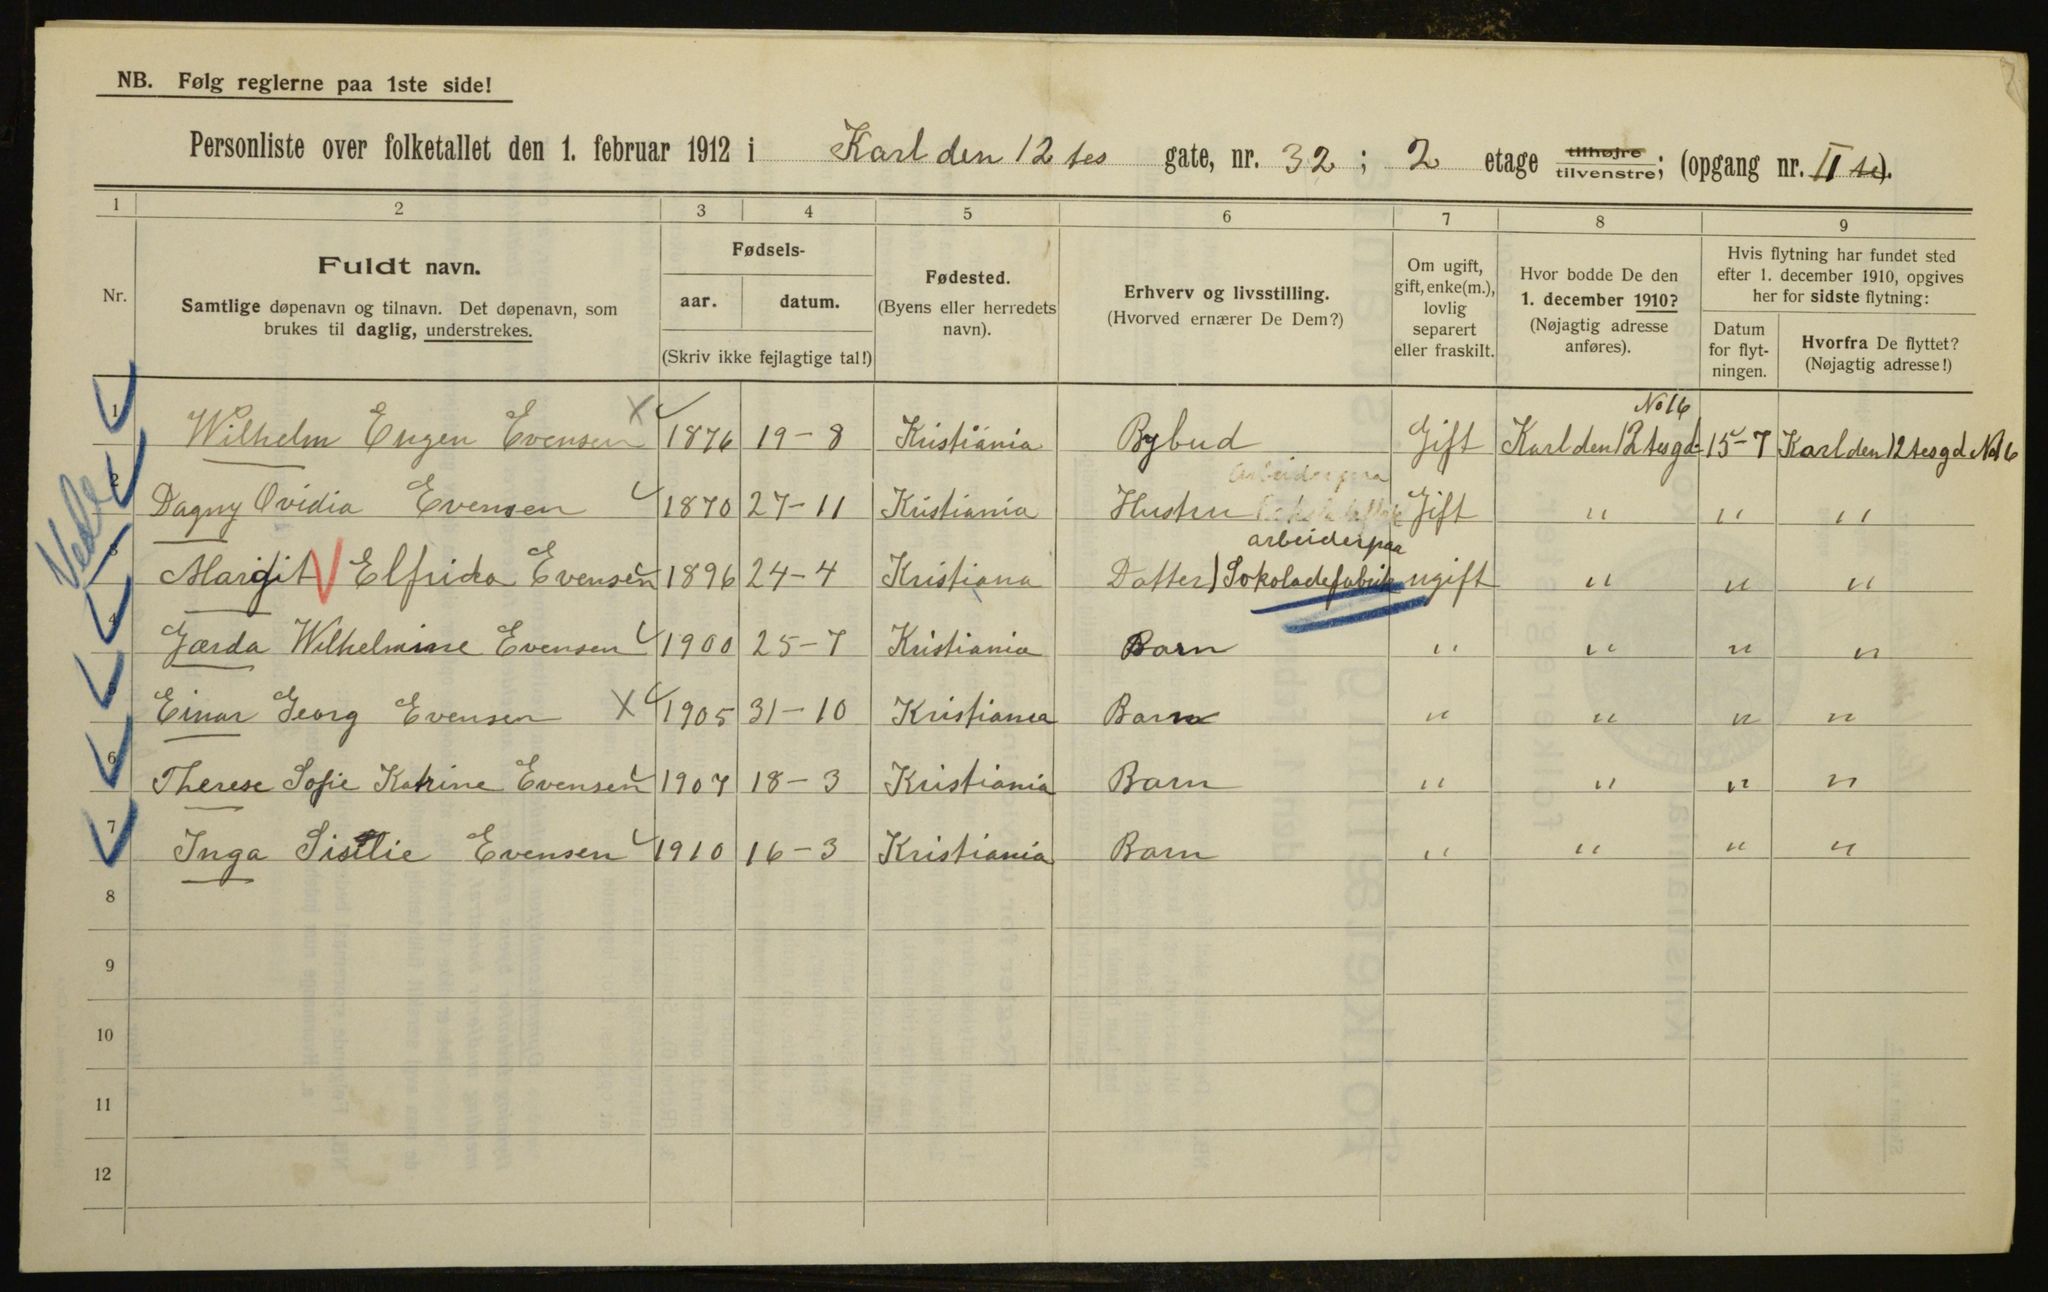 NB. Følg reglerne paa 1ste side!
Personliste over folketallet den 1. februar 1912 i Karl den 12 tes gate, nr. 32 ; 2 etage tilhøjre tilvenstre; (opgang nr. II te).
1 2 3 4 5 6 7 8 9
Nr.
Fuldt navn.
Samtlige døpenavn og tilnavn. Det døpenavn, som
brukes til daglig, understrekes.
Fødsels-
aar. datum.
(Skriv ikke fejlagtige tal!)
Fødested.
(Byens eller herredets
navn).
Erhverv og livsstilling.
(Hvorved ernærer De Dem?)
Om ugift,
gift, enke(m.),
lovlig
separert
eller fraskilt.
Hvor bodde De den
1. december 1910?
(Nøjagtig adresse
anføres).
Hvis flytning har fundet sted
efter 1. december 1910, opgives
her for sidste flytning:
Datum
for flyt-
ningen.
Hvorfra De flyttet?
(Nøjagtig adresse!)
No 16
1 Wilhelm Eugen Evensen X 1876 19-8 Kristiania Bybud Gift Karl den 12 tes gd. 15-7 Karl den 12 tes gd No 16
arbeider paa
2 Dagny Ovidia Evensen 1870 27-11 Kristiania Hustru Gift " " "
arbeider paa
3 Margit Elfrida Evensen 1896 24-4 Kristiana Datter) Sokoladefabrik ugift " " "
4 Gjærda Wilhelmine Evensen 1900 25-7 Kristiania Barn " " " "
5 Einar Georg Evensen X 1905 31-10 Kristiania Barn " " " "
6 Therese Sofie Katrine Evensen 1907 18-3 Kristiania Barn " " " "
7 Inga Sisilie Evensen 1910 16-3 Kristiania Barn " " " "
8
9
10
11
12